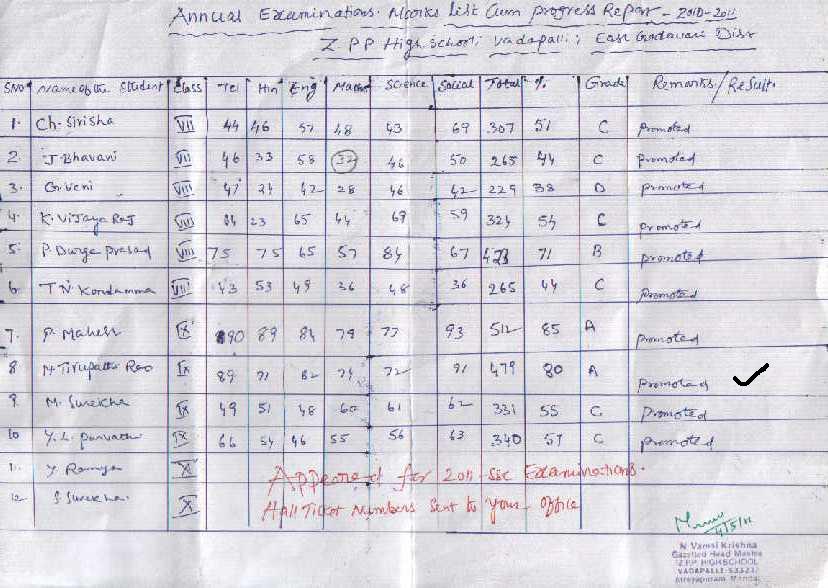 Annual Examinations. Marks List Cum progress Report - 2010-2011
Z PP High school, Vadapalli, East Godavari Dist
SNO Name of the Student Class Tel Hin Eng Maths Science Social Total % Grade Remarks/Result.
1. Ch. Sirisha VII 44 46 57 48 43 69 307 51 C promoted
2 J. Bhavani VII 46 33 58 32 46 50 265 44 C promoted
3. G. Veni VIII 47 24 42 28 46 42 229 38 D promoted
4. K. Vijaya Raj VIII 23 65 44 69 59 324 54 C promoted
5. P. Durga prasad VIII 75 75 65 57 84 67 423 71 B promoted
6. T N Kondamma VIII 43 53 49 36 48 36 265 44 C promoted
7. P. Mahesh IX 90 89 84 79 77 93 512 85 A Promoted
8 N Tirupathi Rao IX 89 71 82 74 72 91 479 80 A promoted ✓
9 M. Surekha IX 49 51 48 60 61 62 331 55 C promoted
10 Y. L. parvathi IX 66 54 46 55 56 63 340 57 C promoted
11 Y Ramya X Appeared for 2011-SSC Examinations.
12 S Surekha X Hall Ticket Numbers Sent to Your Office
4/5/11
N Vamsi Krishna
Gazetted Head Master
Z.P.P HIGHSCHOOL
VADAPALLE-533237
Atreyapuram Mandal